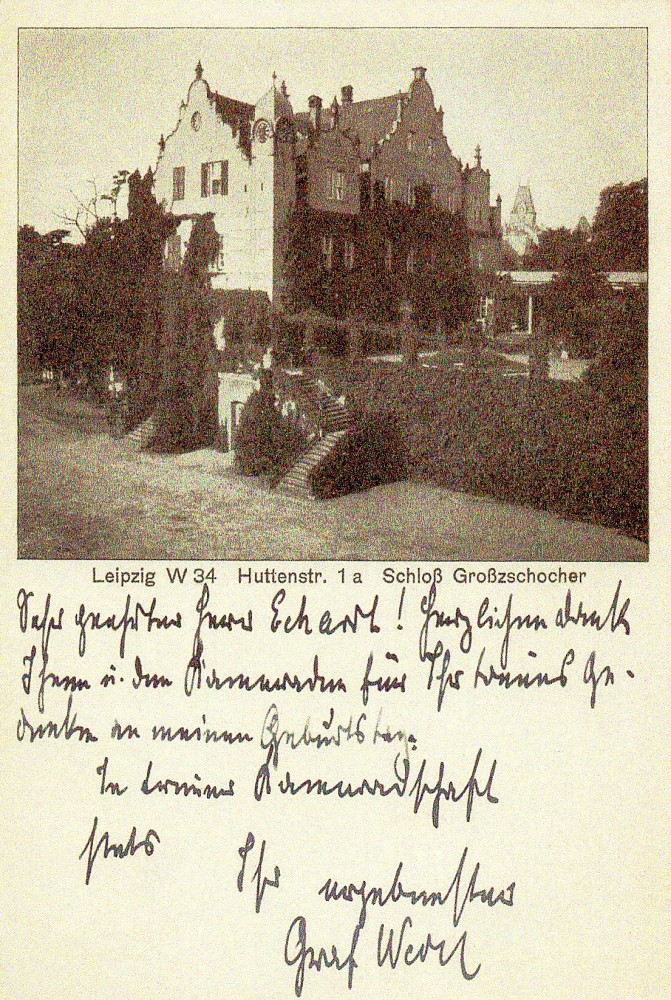 Leipzig W 34 Huttenstr. 1 a Schloß Großzschocher
Sehr geehrter Herr Eckardt! Herzlichen Dank
Ihnen u. den Kameraden für Ihr treues Ge-
denken an meinen Geburtstag.
In treuer Kameradschaft
stets
Ihr ergebenster
Graf